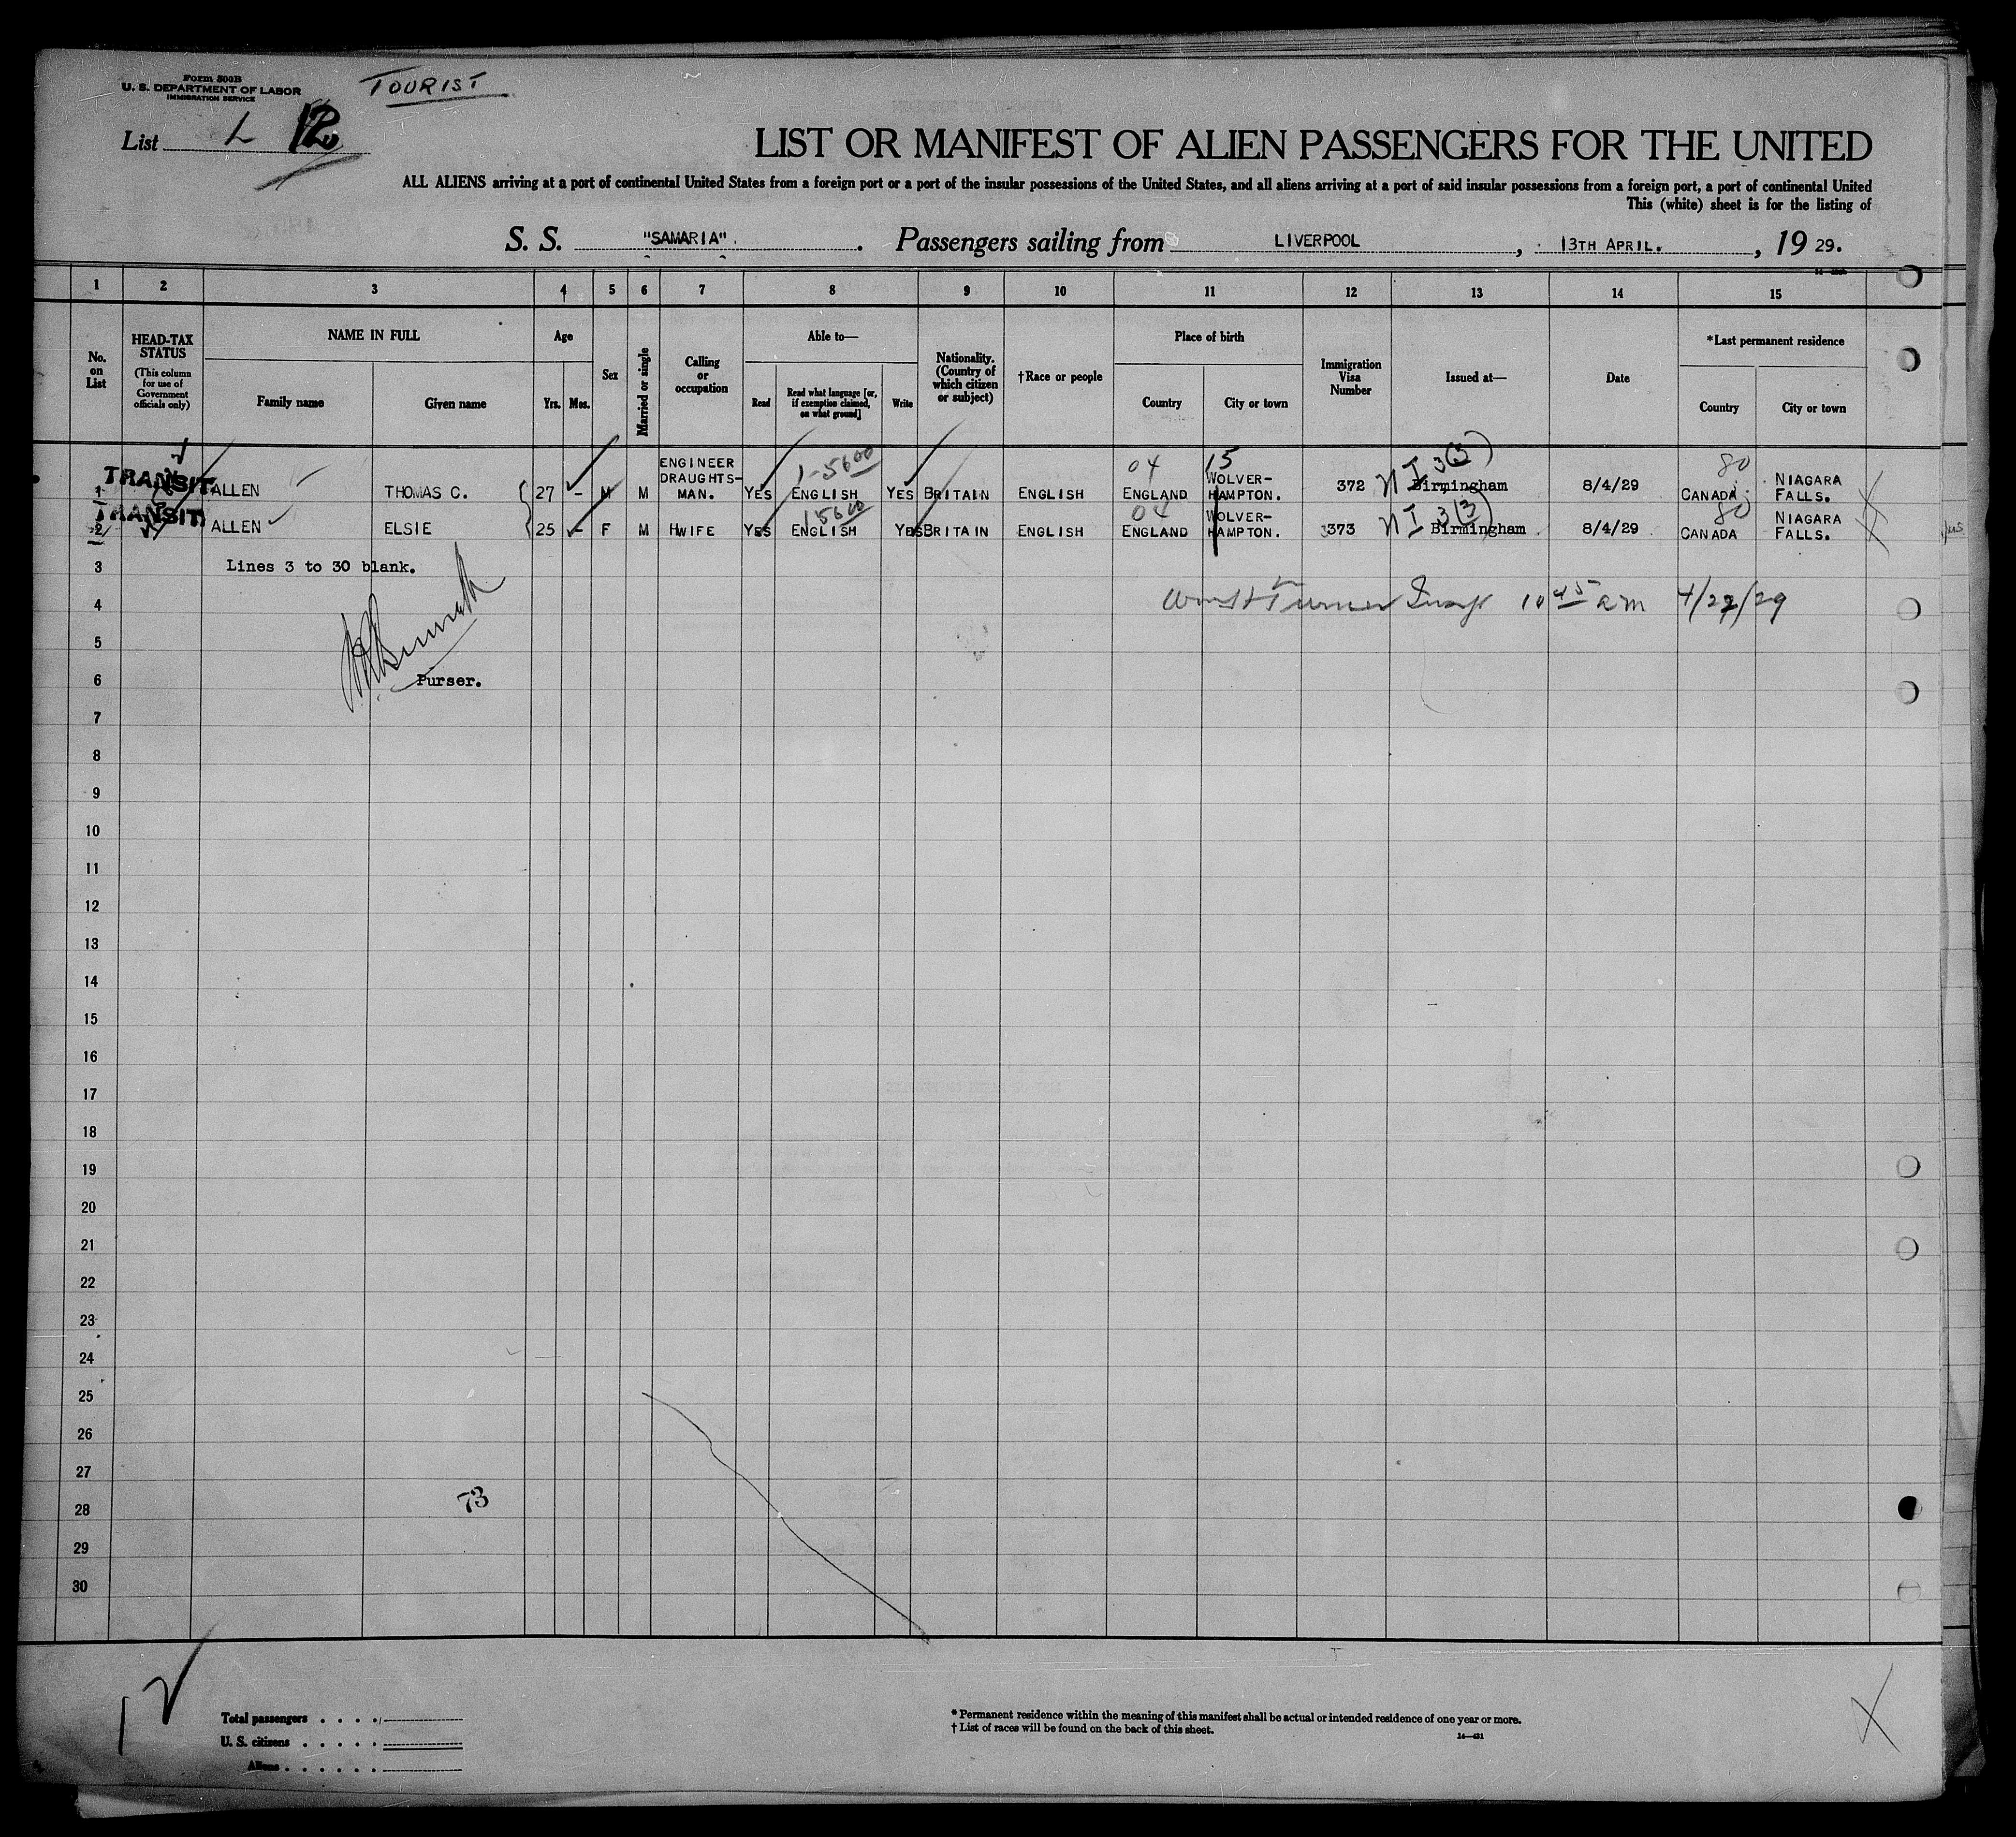 Form 500B
U. S. DEPARTMENT OF LABOR
IMMIGRATION SERVICE
TOURIST
List L 12
LIST OR MANIFEST OF ALIEN PASSENGERS FOR THE UNITED
ALL ALIENS arriving at a port of continental United States from a foreign port or a port of the insular possessions of the United States, and all aliens arriving at a port of said insular possessions from a foreign port, a port of continental United
This (white) sheet is for the listing of
S. S. "SAMARIA". Passengers sailing from LIVERPOOL, 13TH APRIL., 19 29.
1 2 3 4 5 6 7 8 9 10 11 12 13 14 15
No. on List
HEAD-TAX STATUS (This column for use of Government officials only)
NAME IN FULL
Family name Given name
Age
Yrs. Mos.
Sex
Married or single
Calling or occupation
Able to—
Read
Read what language [or, if exemption claimed, on what ground]
Write
Nationality. (Country of which citizen or subject)
†Race or people
Place of birth
Country City or town
Immigration Visa Number
Issued at—
Date
*Last permanent residence
Country City or town
1 TRANSIT ALLEN THOMAS C. 27 - M M ENGINEER DRAUGHTS-MAN. YES ENGLISH YES BRITAIN ENGLISH 04 ENGLAND 15 WOLVER-HAMPTON. 372 NI 3(3) Birmingham 8/4/29 80 CANADA NIAGARA FALLS.
2 TRANSIT ALLEN ELSIE 25 - F M HWIFE YES ENGLISH YES BRITAIN ENGLISH 04 ENGLAND WOLVER-HAMPTON. 373 NI 3(3) Birmingham 8/4/29 80 CANADA NIAGARA FALLS.
3 Lines 3 to 30 blank.
4 Turner 10 45 am 4/22/29
5
6 Purser.
7
8
9
10
11
12
13
14
15
16
17
18
19
20
21
22
23
24
25
26
27
28 73
29
30
Total passengers
U. S. citizens
Aliens
* Permanent residence within the meaning of this manifest shall be actual or intended residence of one year or more.
† List of races will be found on the back of this sheet.
14—431